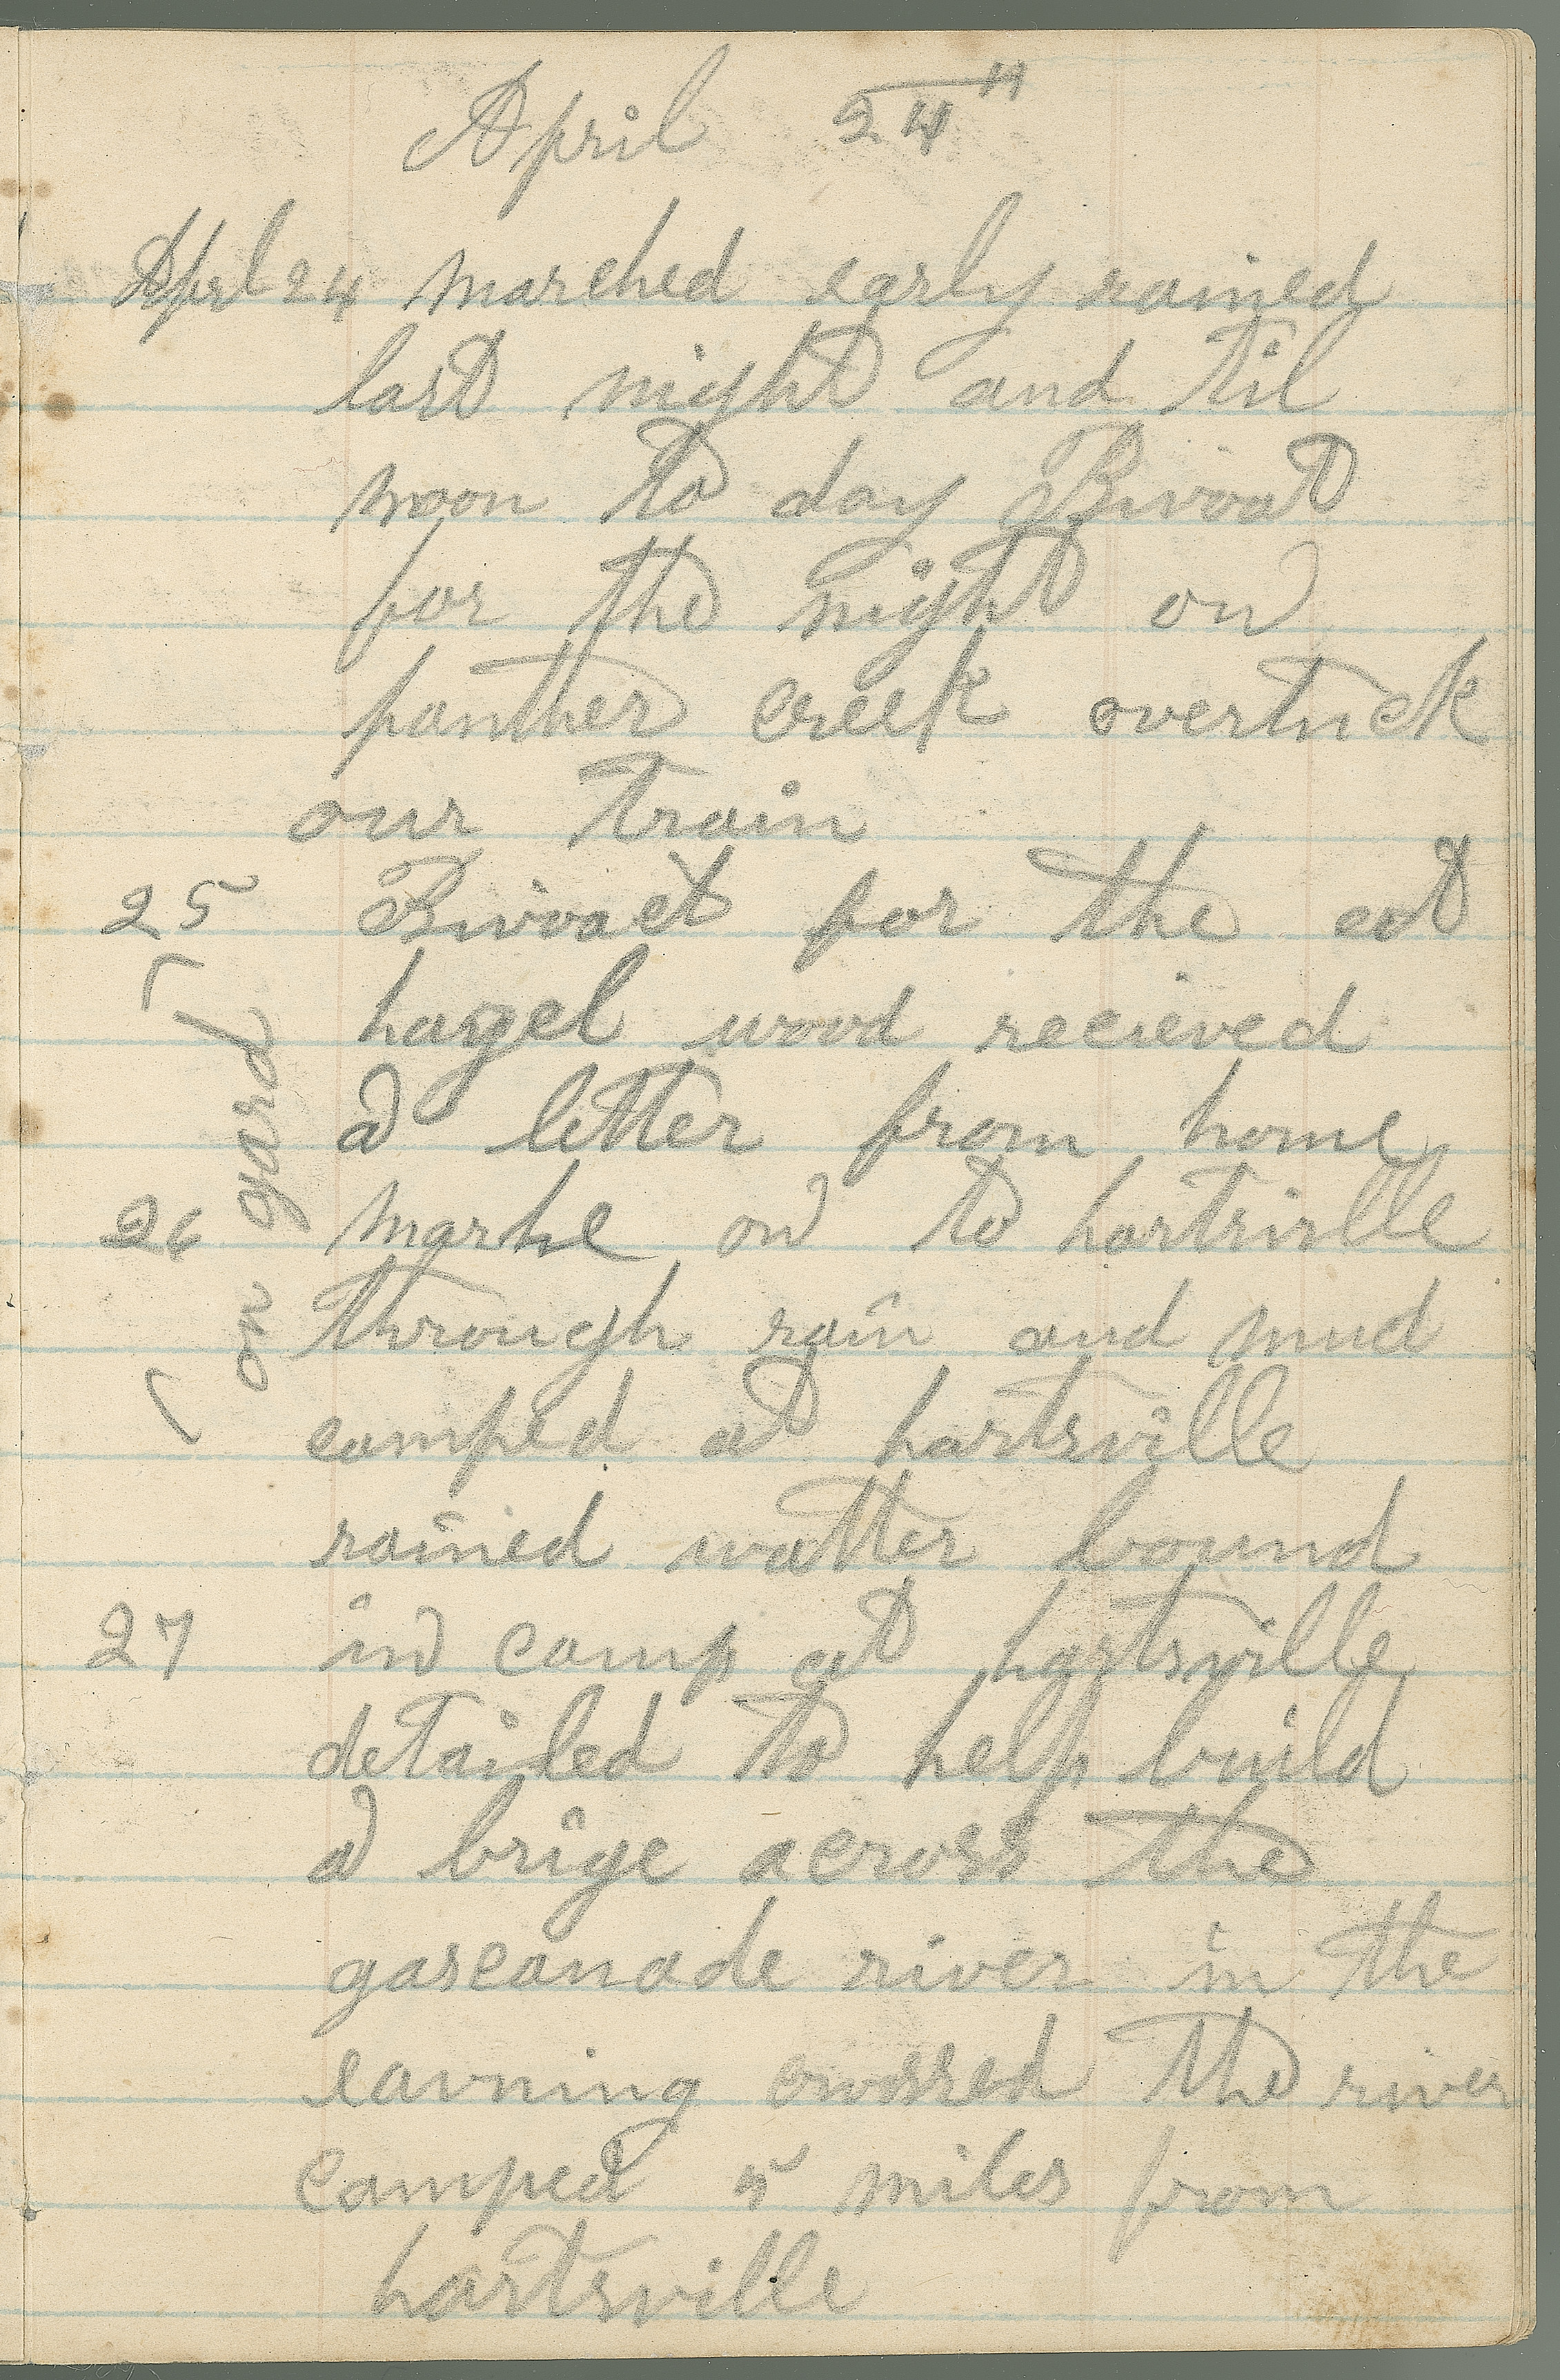 April 24"
Aprl 24 marched early rained
last night and til
noon to day Bivoat
for the night on
panther creek overtuck
our train
25 Bivoact for the at
hazel wood recieved
a letter from home
on gard
26 marhe on to hartsville
through rain and mud
camped at hartsville
rained watter bound
27 in camp at hartsville
detailed to help build
a brige across the
gascanade river in the
eavning crossed the river
camped 5 miles from
hartsville